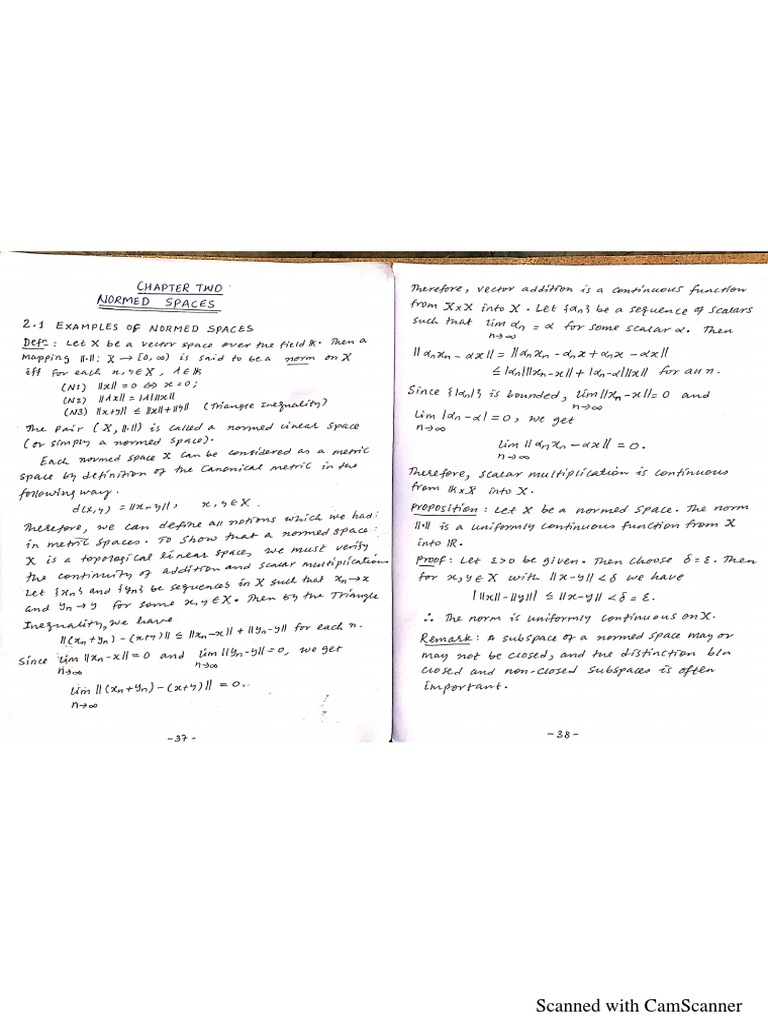 CHAPTER TWO
NORMED SPACES
2.1 EXAMPLES OF NORMED SPACES
Defn: Let X be a vector space over the field K. Then a
mapping ||.||: X → [0, ∞) is said to be a norm on X
iff for each x, y ∈ X, λ ∈ K
(N1) ||x|| = 0 ⇔ x = 0;
(N2) ||λx|| = |λ| ||x||
(N3) ||x+y|| ≤ ||x|| + ||y|| (Triangle Inequality)
The pair (X, ||.||) is called a normed linear space
(or simply a normed space).
Each normed space X can be considered as a metric
space by definition of the canonical metric in the
following way.
d(x,y) = ||x-y||, x, y ∈ X.
Therefore, we can define all notions which we had
in metric spaces. To show that a normed space
X is a topological linear space, we must verify
the continuity of addition and scalar multiplication.
Let {xn} and {yn} be sequences in X such that xn → x
and yn → y for some x, y ∈ X. Then by the Triangle
Inequality, we have
||(xn+yn) - (x+y)|| ≤ ||xn-x|| + ||yn-y|| for each n.
Since lim ||xn-x|| = 0 and lim ||yn-y|| = 0, we get
n→∞ n→∞
lim ||(xn+yn) - (x+y)|| = 0.
n→∞
-37-
Therefore, vector addition is a continuous function
from X×X into X. Let {αn} be a sequence of scalars
such that lim αn = α for some scalar α. Then
n→∞
||αnxn - αx|| = ||αnxn - αnx + αnx - αx||
≤ |αn| ||xn-x|| + |αn-α| ||x|| for all n.
Since {|αn|} is bounded, lim ||xn-x|| = 0 and
n→∞
lim |αn-α| = 0, we get
n→∞
lim ||αnxn - αx|| = 0.
n→∞
Therefore, scalar multiplication is continuous
from K×X into X.
Proposition: Let X be a normed space. The norm
||.|| is a uniformly continuous function from X
into IR.
Proof: Let ε>0 be given. Then choose δ = ε. Then
for x, y ∈ X with ||x-y|| < δ we have
| ||x|| - ||y|| | ≤ ||x-y|| < δ = ε.
∴ The norm is uniformly continuous on X.
Remark: A subspace of a normed space may or
may not be closed, and the distinction b/n
closed and non-closed subspaces is often
important.
-38-
Scanned with CamScanner